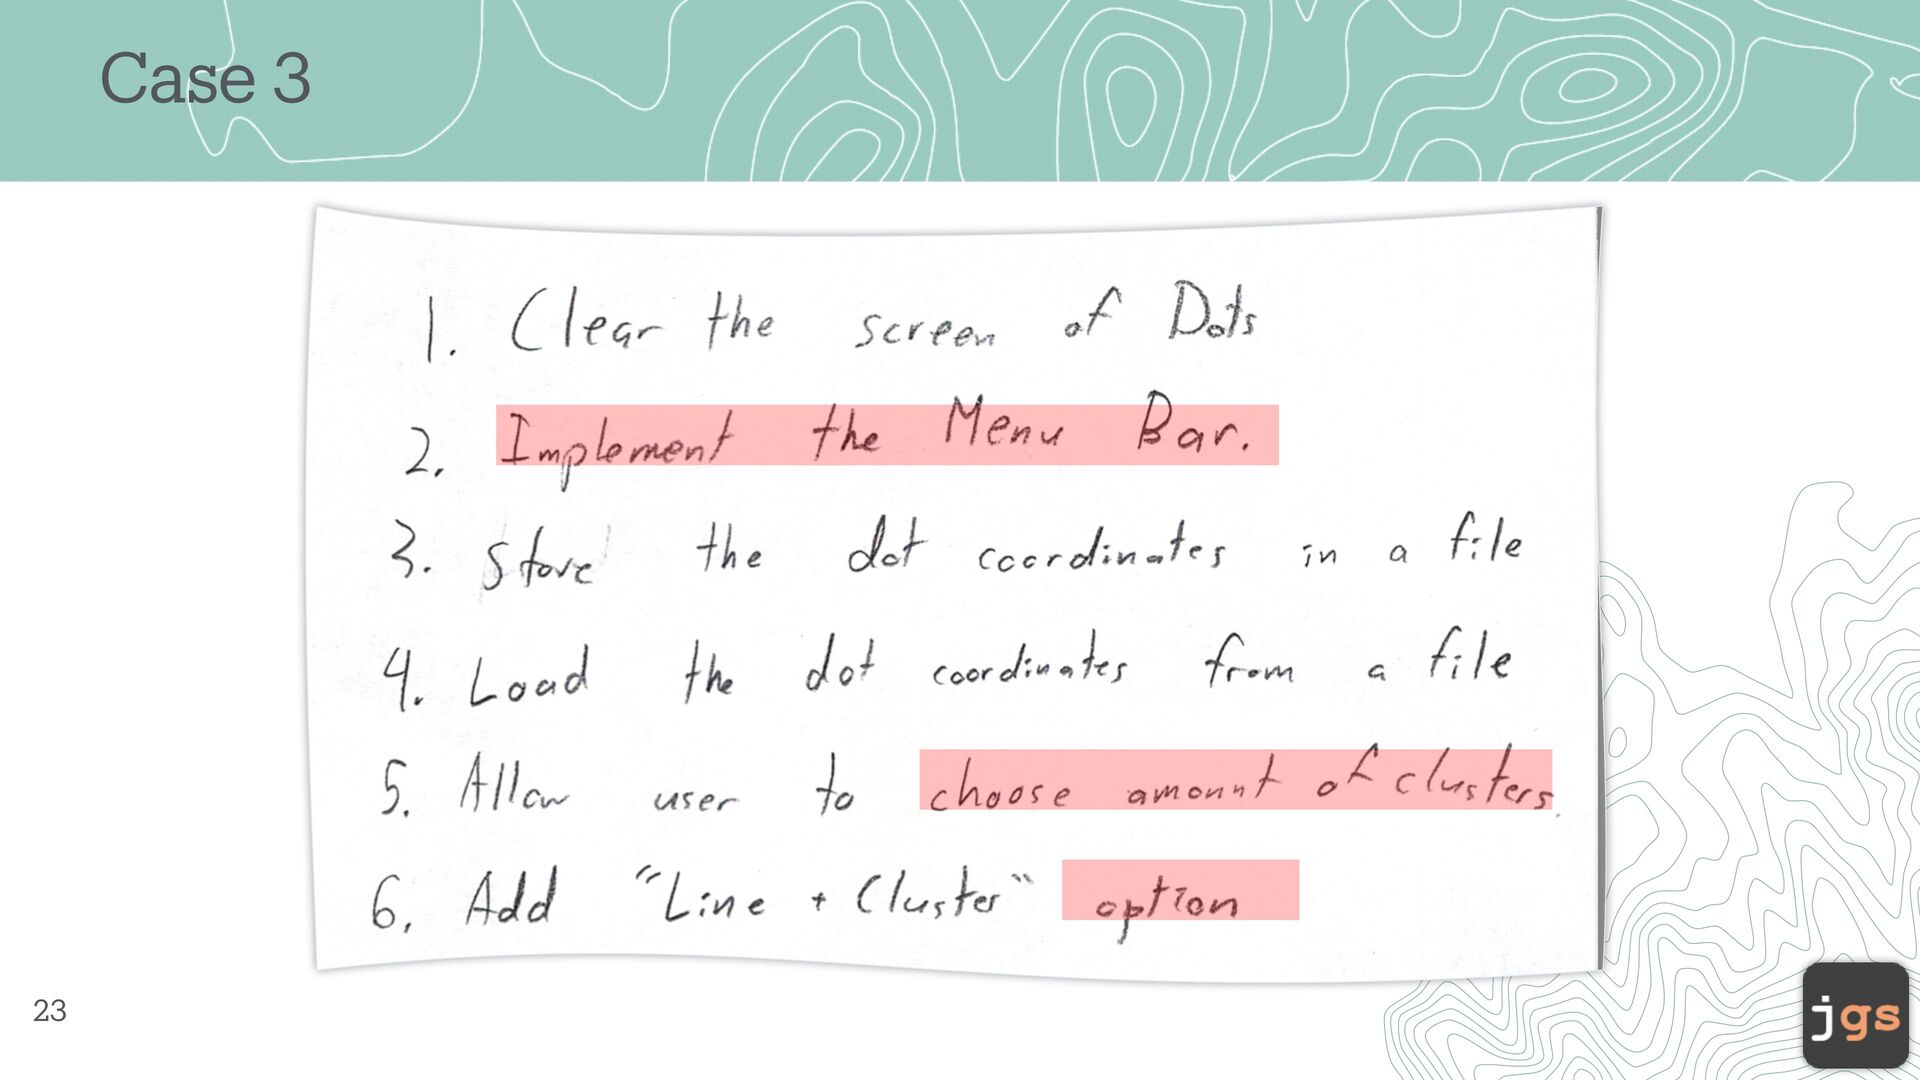 Case 3
1. Clear the screen of Dots
2. Implement the Menu Bar.
3. Store the dot coordinates in a file
4. Load the dot coordinates from a file
5. Allow user to choose amount of clusters.
6. Add "Line + Cluster" option
23
jgs